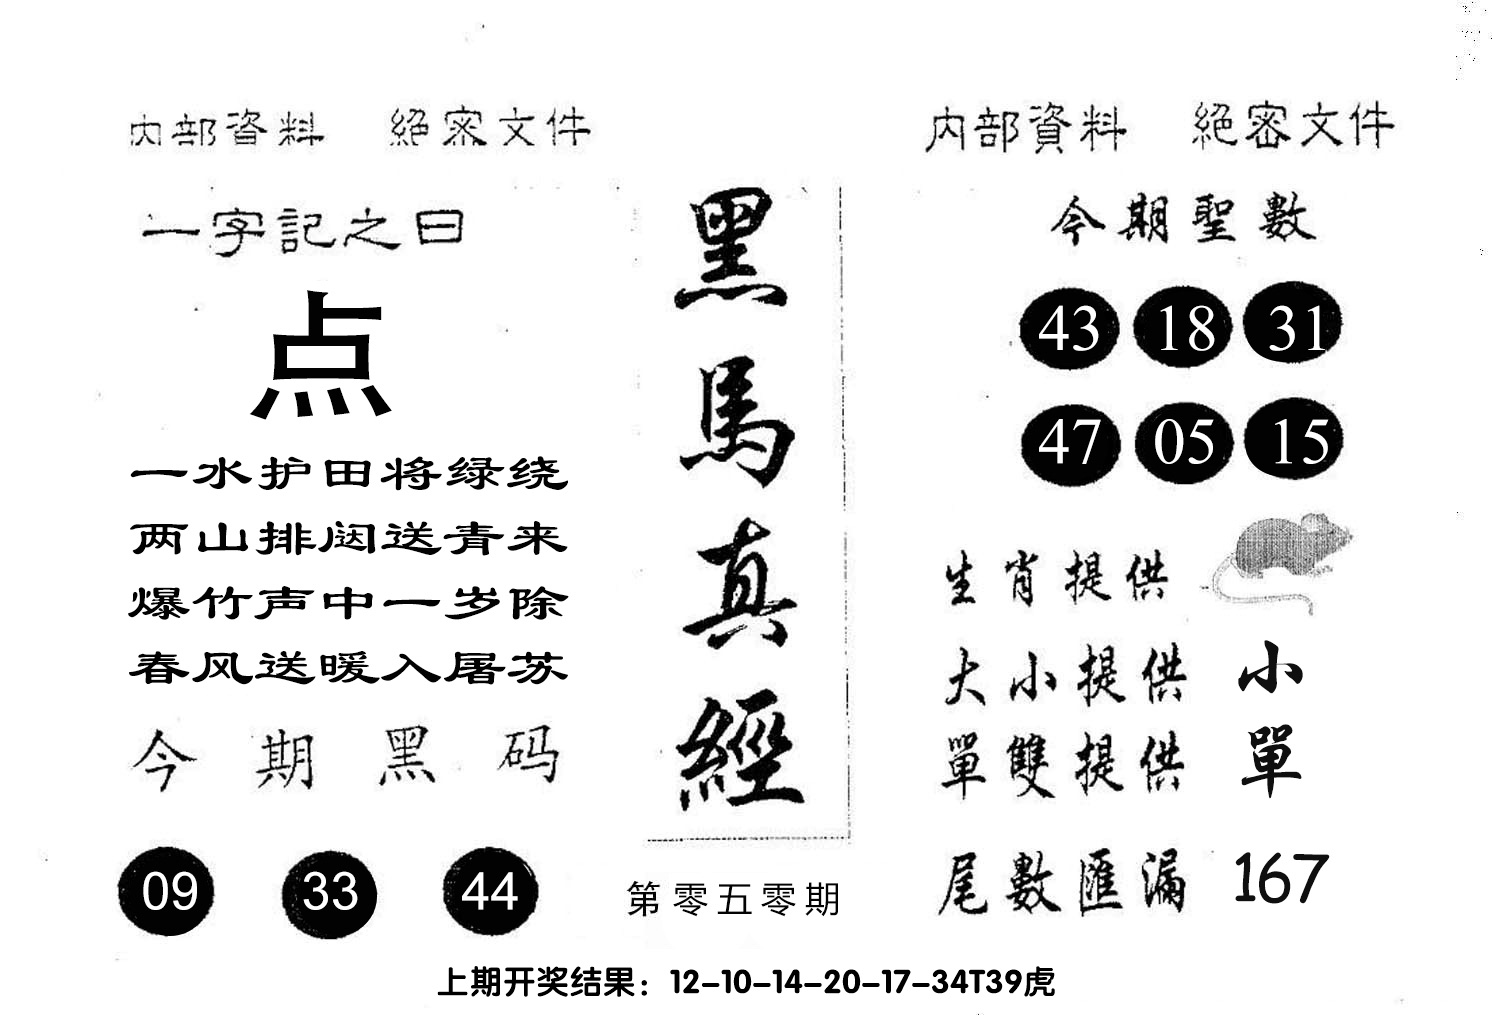 內部資料 絕密文件
一字記之曰
点
一水护田将绿绕
两山排闼送青来
爆竹声中一岁除
春风送暖入屠苏
今期黑码
09 33 44
黑馬真經
第零五零期
內部資料 絕密文件
今期聖數
43 18 31
47 05 15
生肖提供
大小提供 小
單雙提供 單
尾數匯漏 167
上期开奖结果：12-10-14-20-17-34T39虎